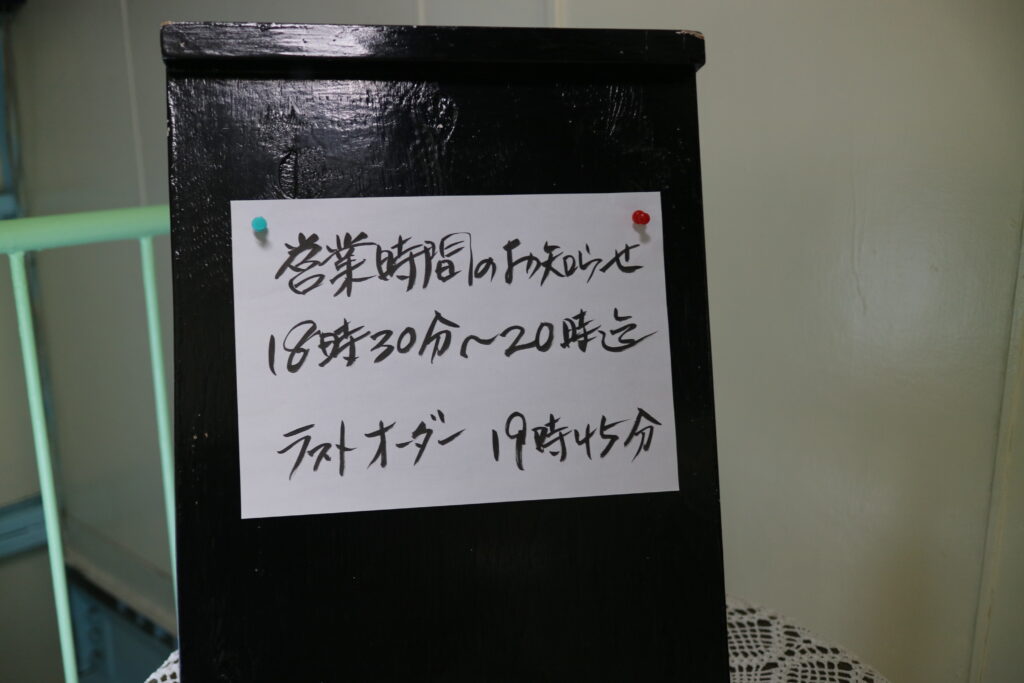 営業時間のお知らせ
18時30分～20時迄
ラストオーダー 19時45分